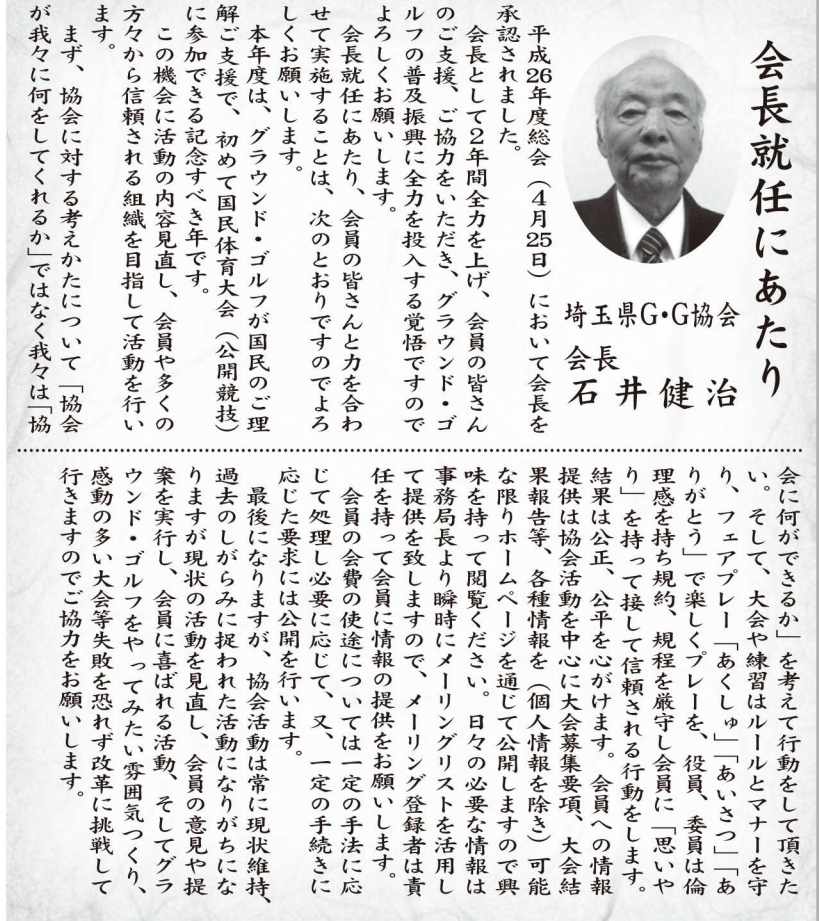 会長就任にあたり
埼玉県G・G協会
会長
石井健治
平成26年度総会（4月25日）において会長を
承認されました。
会長として2年間全力を上げ、会員の皆さん
のご支援、ご協力をいただき、グラウンド・ゴ
ルフの普及振興に全力を投入する覚悟ですので
よろしくお願いします。
会長就任にあたり、会員の皆さんと力を合わ
せて実施することは、次のとおりですのでよろ
しくお願いします。
本年度は、グラウンド・ゴルフが国民のご理
解ご支援で、初めて国民体育大会（公開競技）
に参加できる記念すべき年です。
この機会に活動の内容見直し、会員や多くの
方々から信頼される組織を目指して活動を行い
ます。
まず、協会に対する考えかたについて「協会
が我々に何をしてくれるか」ではなく我々は「協
会に何ができるか」を考えて行動をして頂きた
い。そして、大会や練習はルールとマナーを守
り、フェアプレー「あくしゅ」「あいさつ」「あ
りがとう」で楽しくプレーを、役員、委員は倫
理感を持ち規約、規程を厳守し会員に「思いや
り」を持って接して信頼される行動をします。
結果は公正、公平を心がけます。会員への情報
提供は協会活動を中心に大会募集要項、大会結
果報告等、各種情報を（個人情報を除き）可能
な限りホームページを通じて公開しますので興
味を持って閲覧ください。日々の必要な情報は
事務局長より瞬時にメーリングリストを活用し
て提供を致しますので、メーリング登録者は責
任を持って会員に情報の提供をお願いします。
会員の会費の使途については一定の手法に応
じて処理し必要に応じて、又、一定の手続きに
応じた要求には公開を行います。
最後になりますが、協会活動は常に現状維持、
過去のしがらみに捉われた活動になりがちにな
りますが現状の活動を見直し、会員の意見や提
案を実行し、会員に喜ばれる活動、そしてグラ
ウンド・ゴルフをやってみたい雰囲気つくり、
感動の多い大会等失敗を恐れず改革に挑戦して
行きますのでご協力をお願いします。